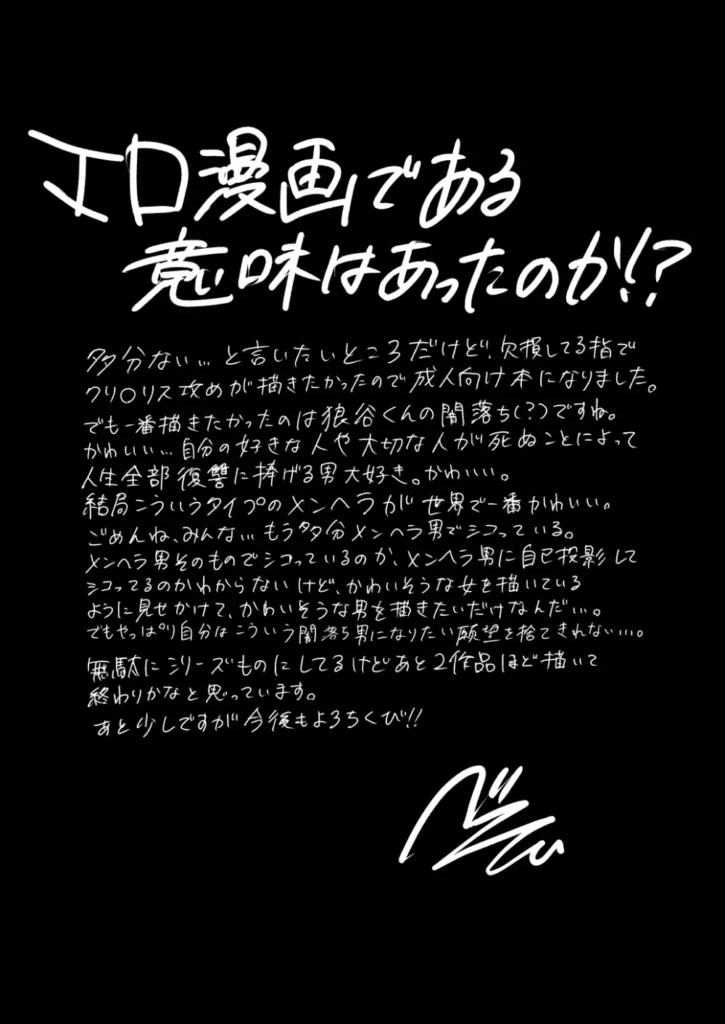 エロ漫画である
意味はあったのか!?
多分ない…と言いたいところだけど、欠損してる指で
クリ○リス攻めが描きたかったので成人向け本になりました。
でも一番描きたかったのは狼谷くんの闇落ち(?)ですね。
かわいい…自分の好きな人や大切な人が死ぬことによって
人生全部復讐に捧げる男大好き。かわいい。
結局こういうタイプのメンヘラが世界で一番かわいい。
ごめんね、みんな…もう多分メンヘラ男でシコっている。
メンヘラ男そのものでシコっているのか、メンヘラ男に自己投影して
シコってるのかわからないけど、かわいそうな女を描いている
ように見せかけて、かわいそうな男を描きたいだけなんだ…。
でもやっぱり自分はこういう闇落ち男になりたい願望を捨てきれない…。
無駄にシリーズものにしてるけどあと2作品ほど描いて
終わりかなと思っています。
あと少しですが今後もよろちくび!!